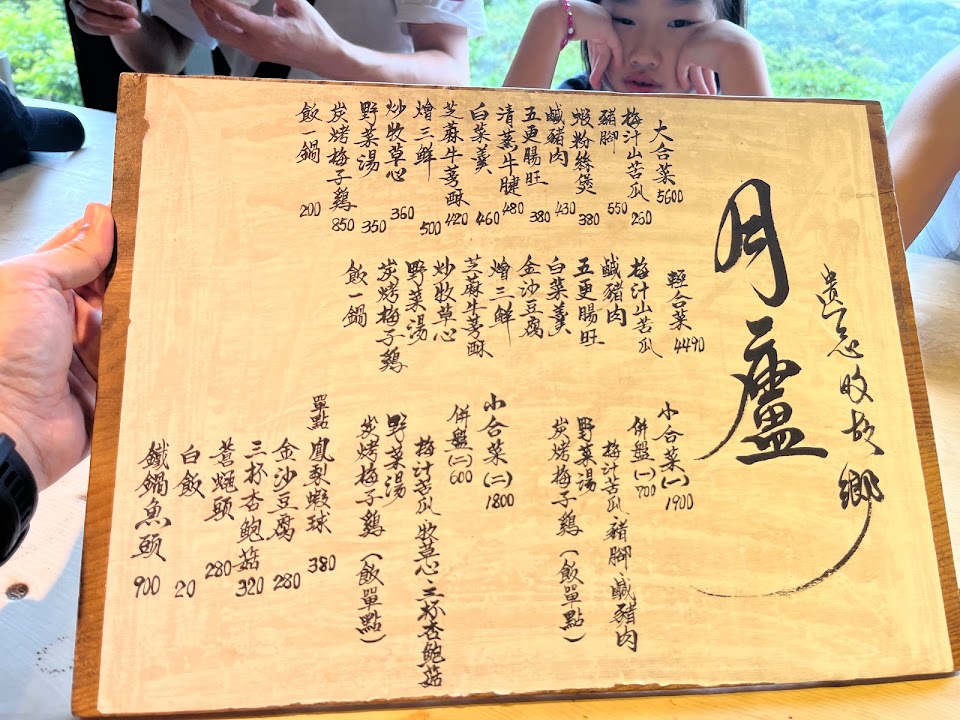 月廬
遺忘的故鄉
大合菜 5600
梅汁山苦瓜 250
豬腳 550
蝦粉絲煲 380
鹹豬肉 430
五更腸旺 380
清蒸牛腱 480
白菜羹 460
芝蔴牛蒡酥 420
燴三鮮 500
炒牧草心 360
野菜湯 350
炭烤梅子鷄 850
飯一鍋 200
輕合菜 4490
梅汁山苦瓜
鹹豬肉
五更腸旺
白菜羹
金沙豆腐
燴三鮮
芝麻牛蒡酥
炒牧草心
野菜湯
炭烤梅子鷄
飯一鍋
小合菜(一) 1900
併盤(一) 700
梅汁苦瓜 豬腳 鹹豬肉
野菜湯
炭烤梅子鷄(飯單點)
小合菜(二) 1800
併盤(二) 600
梅汁苦瓜 牧草心 三杯杏鮑菇
野菜湯
炭烤梅子鷄(飯單點)
單點
鳳梨蝦球 380
金沙豆腐 280
三杯杏鮑菇 320
蒼蠅頭 280
白飯 20
鐵鍋魚頭 900